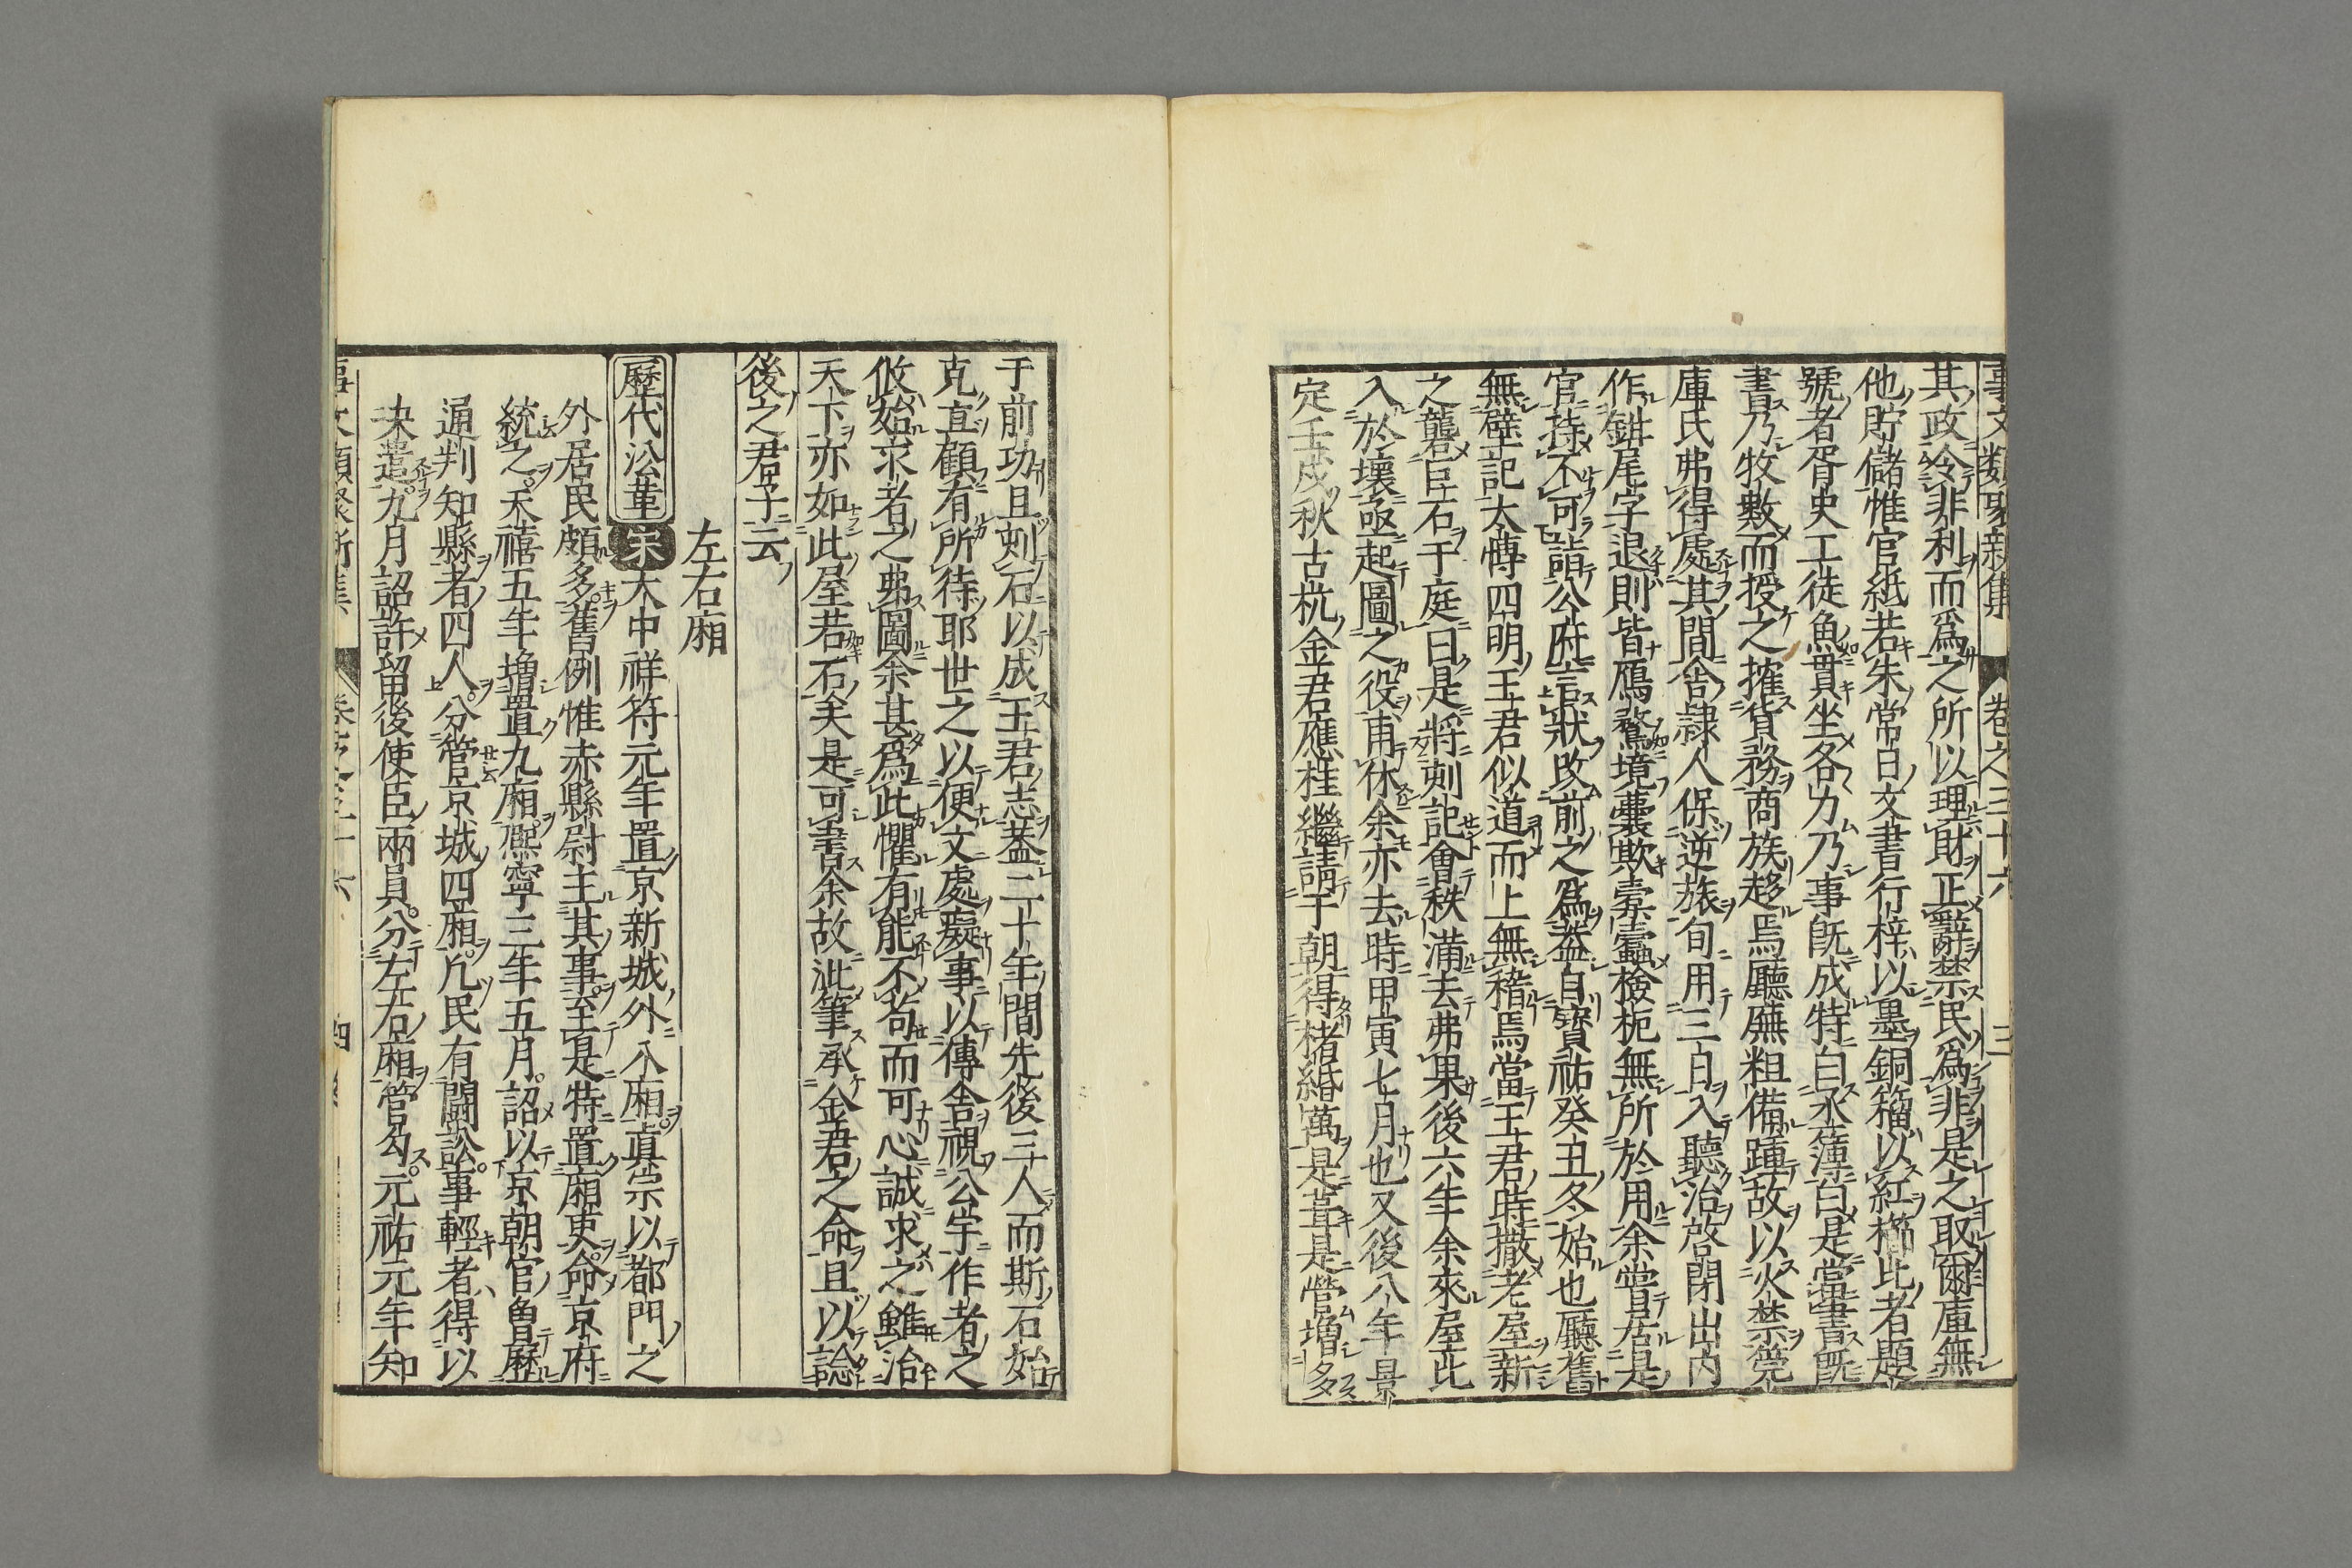 事文類聚新集 卷之三十六 三
其政令非利而爲之所以理財正辭禁民爲非是之取爾庫無
他貯儲惟官紙若朱常日文書行梓以墨銅籀以紅櫛此者題
號者胥史工徒魚貫坐各力乃事既成特白丞簿白是當書既
書乃牧數而授之搉貨務商族趍焉廳廡粗備踵故以火禁筦
庫氏弗得處其間舍隷人保逆旅旬用三日入聽治啓閉出內
作銜尾字退則皆鴈鶩境囊欺橐蠹檢柅無所於用余嘗居是
官持不可詣公府言狀改前之爲葢自寶祐癸丑冬始也廳舊
無壁記太愽四明王君似道而上無稽焉當王君時撒老屋新
之礱巨石于庭曰是將刻記會秩滿去弗果後六年余來屋圮
入於壞亟起圖之役甫休余亦去時甲寅七月也又後八年景
定壬戌秋古杭金君應桂繼請于朝得楮緡萬是葺是營增多
于前功且刻石以成王君志葢二十年間先後三人而斯石始
克直顧有所待耶世之以便文處癡事以傳舍視公宇作者之
攸始求者之弗圖余甚爲此懼有能不苟而可心誠求之雖治
天下亦如此屋若石矣是可書余故泚筆承金君之命且以諗
後之君子云
左右廂
歷代沿革 宋 大中祥符元年置京新城外八廂眞宗以都門之
外居民頗多舊例惟赤縣尉主其事至是特置廂吏命京府
統之天禧五年增置九廂熈寧三年五月詔以京朝官曾歷
通判知縣者四人分管京城四廂凡民有鬪訟事輕者得以
決遣九月詔許留後使臣兩員分左右廂管勾元祐元年知